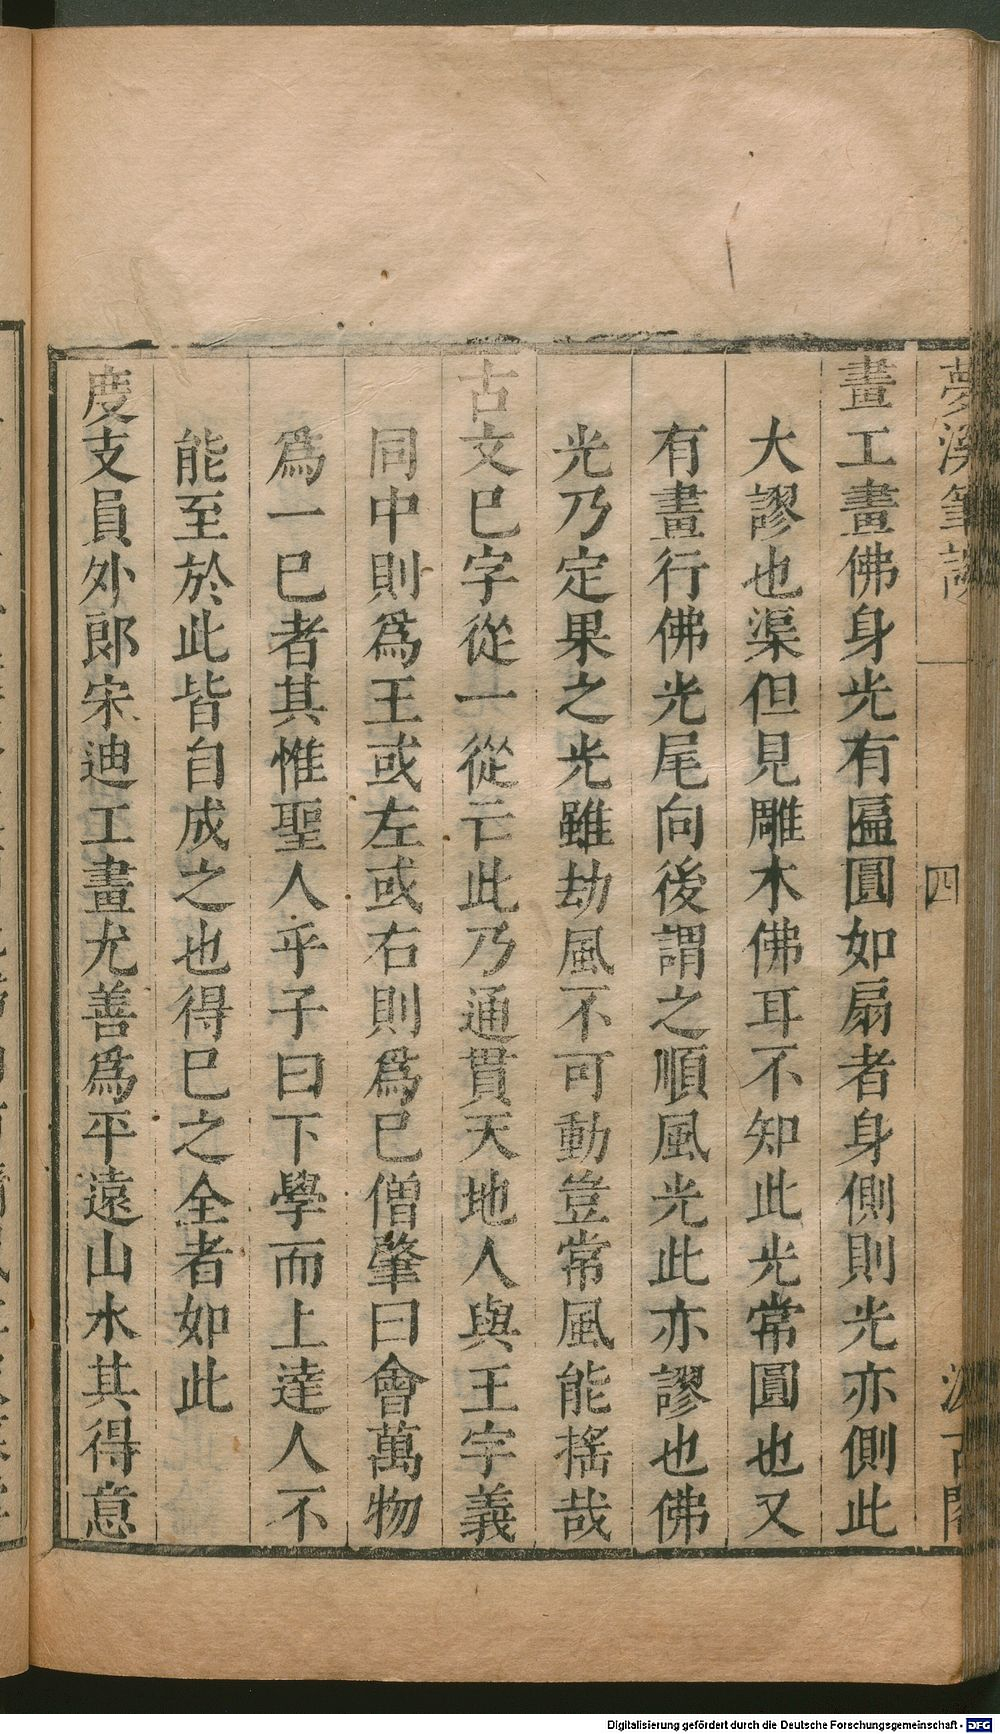 夢溪筆談
四
汲古閣
畫工畫佛身光有匾圓如扇者身側則光亦側此
大謬也渠但見雕木佛耳不知此光常圓也又
有畫行佛光尾向後謂之順風光此亦謬也佛
光乃定果之光雖劫風不可動豈常風能搖哉
古文巳字從一從亡此乃通貫天地人與王字義
同中則爲王或左或右則爲巳僧肇曰會萬物
爲一巳者其惟聖人乎子曰下學而上達人不
能至於此皆自成之也得巳之全者如此
度支員外郎宋迪工畫尤善爲平遠山水其得意
Digitalisierung gefördert durch die Deutsche Forschungsgemeinschaft - DFG